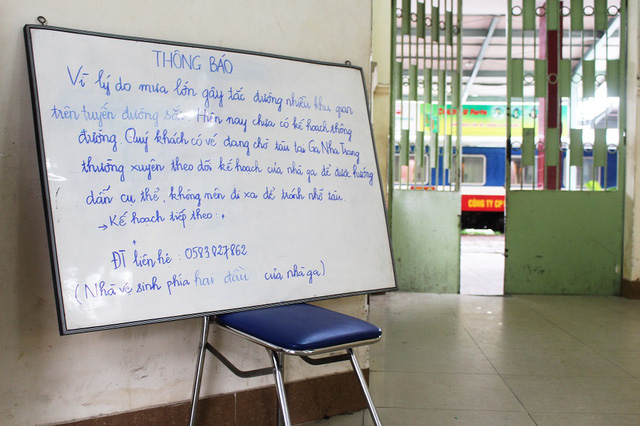 THÔNG BÁO
Vì lý do mưa lớn gây tắc đường nhiều khu gian
trên tuyến đường sắt. Hiện nay chưa có kế hoạch thông
đường. Quý khách có vé đang chờ tàu tại Ga Nha Trang
thường xuyên theo dõi kế hoạch của nhà ga để được hướng
dẫn cụ thể, không nên đi xa để tránh nhỡ tàu.
→ Kế hoạch tiếp theo:
ĐT liên hệ: 0583827862
(Nhà vệ sinh phía hai đầu của nhà ga)
CÔNG TY CP